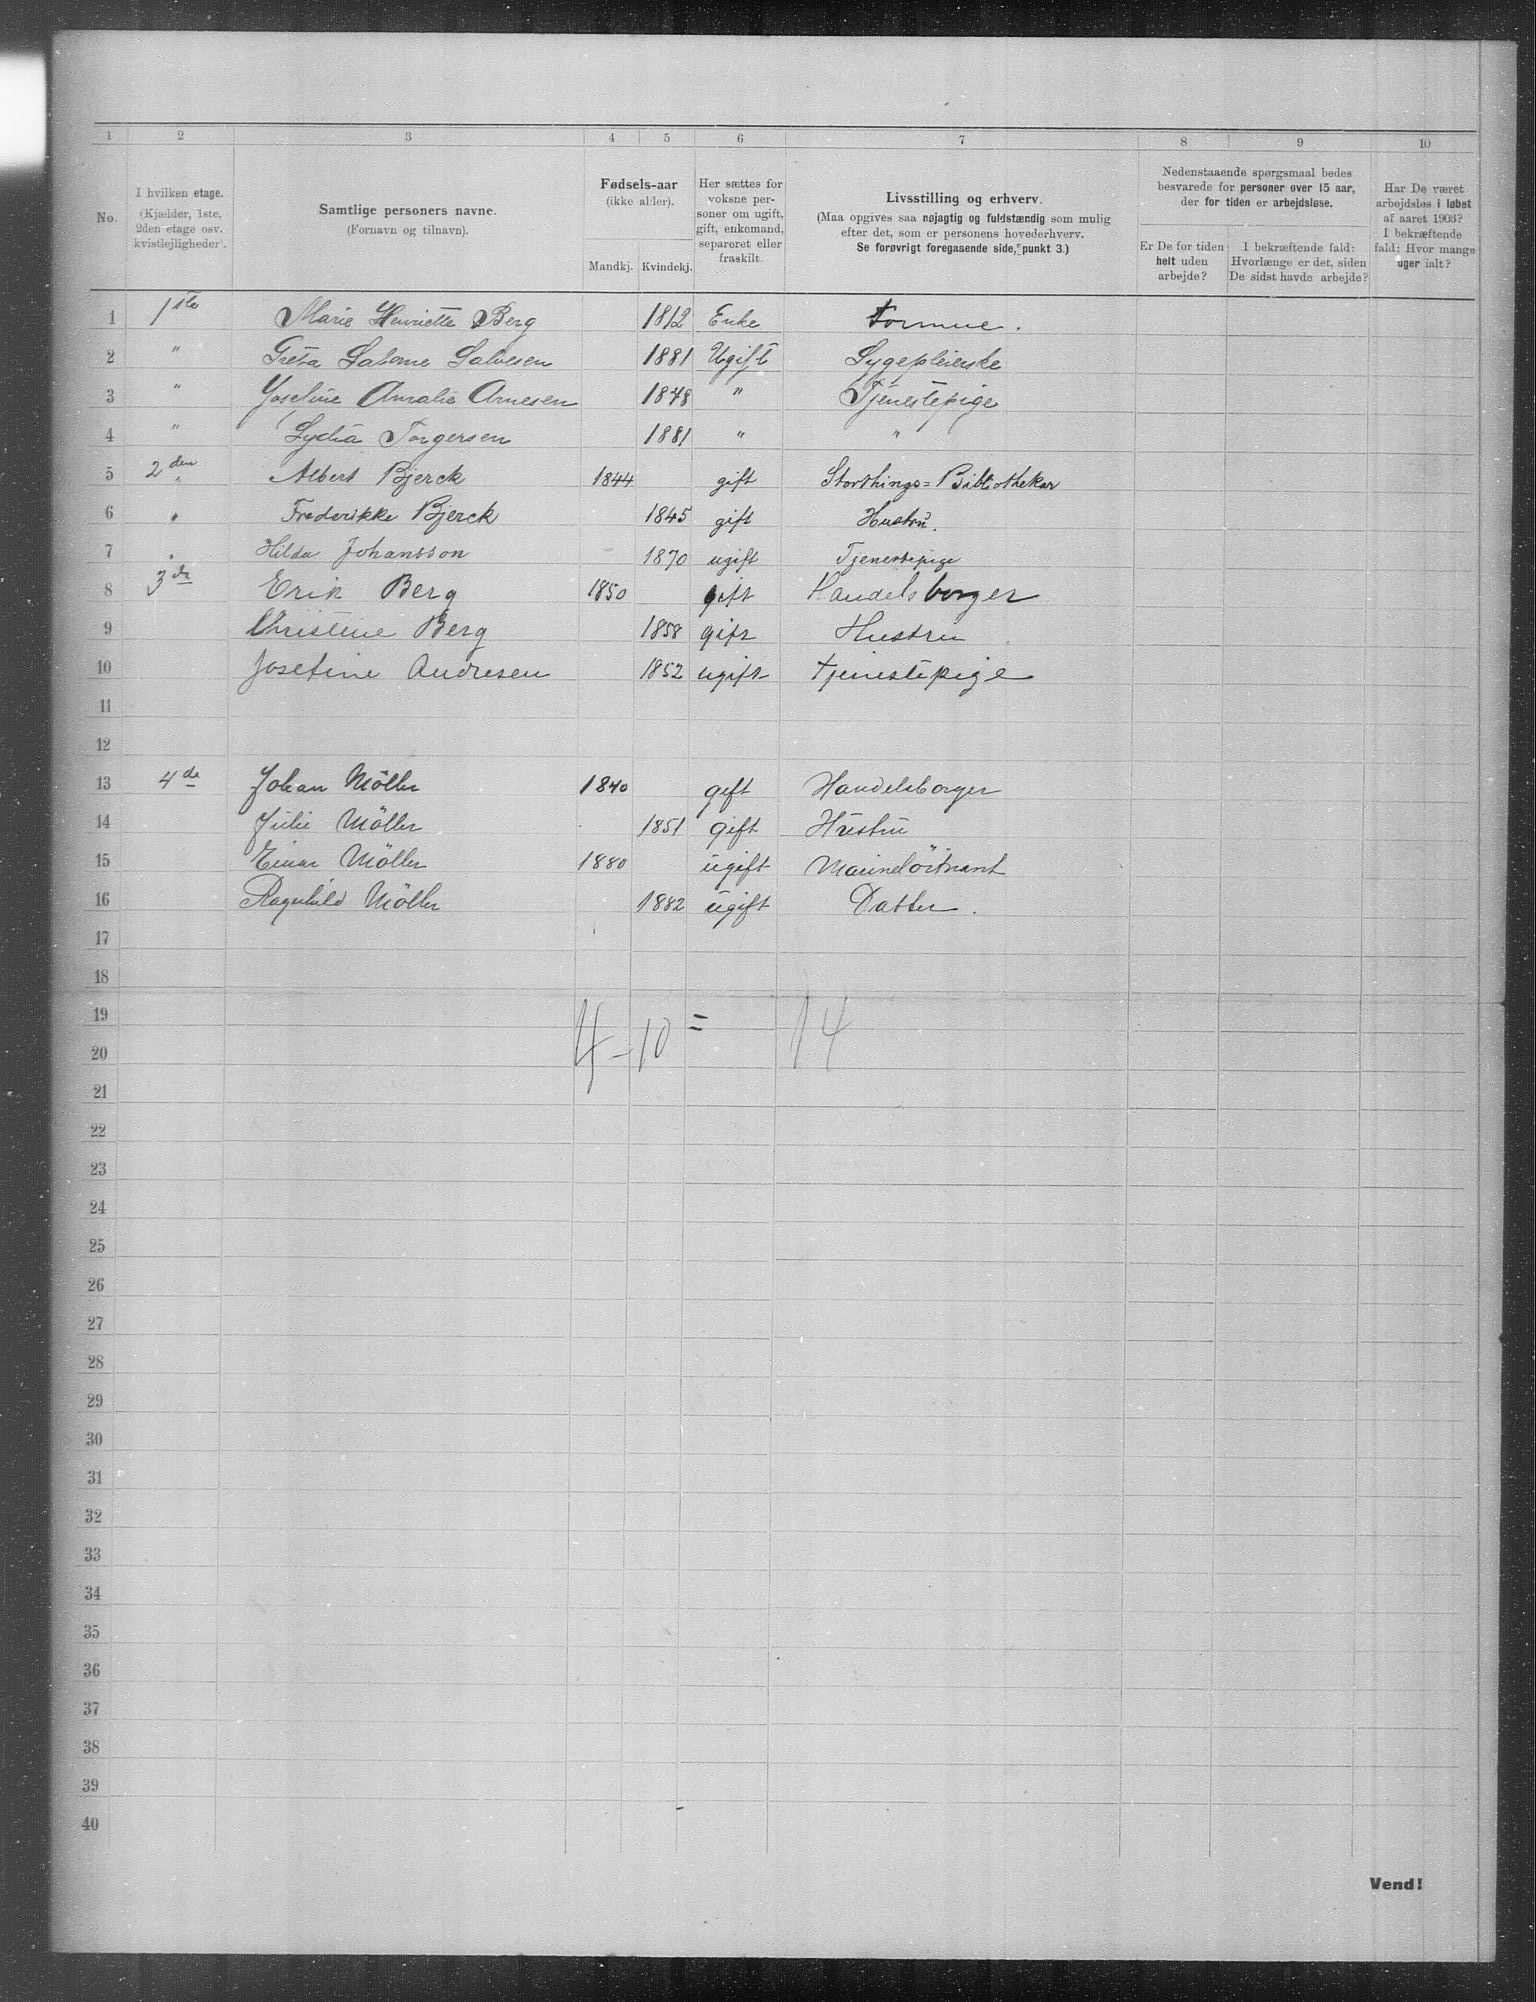 1 2 3 4 5 6 7 8 9 10
No.
I hvilken etage.
(Kjælder, 1ste,
2den etage osv.
kvistlejligheder).
Samtlige personers navne.
(Fornavn og tilnavn).
Fødsels-aar
(ikke alder).
Mandkj. Kvindekj.
Her sættes for
voksne per-
soner om ugift,
gift, enkemand,
separeret eller
fraskilt.
Livsstilling og erhverv.
(Maa opgives saa nøjagtig og fuldstændig som mulig
efter det, som er personens hovederhverv.
Se forøvrigt foregaaende side, punkt 3.)
Nedenstaaende spørgsmaal bedes
besvarede for personer over 15 aar,
der for tiden er arbejdsløse.
Er De for tiden
helt uden
arbejde?
I bekræftende fald:
Hvorlænge er det, siden
De sidst havde arbejde?
Har De været
arbejdsløs i løbet
af aaret 1903?
I bekræftende
fald: Hvor mange
uger ialt?
1 1ste Marie Henriette Berg 1812 Enke Formue.
2 " Greta Salome Salvesen 1881 Ugift Sygepleierske
3 " Josefine Amalie Arnesen 1848 " Tjenestepige
4 " Lydia Torgersen 1881 " "
5 2den " Albert Bjerck 1844 gift Storthings=Bibliothekar
6 " Frederikke Bjerck 1845 gift Hustru.
7 " Hilda Johansson 1870 ugift Tjenestepige
8 3de Erik Berg 1850 gift Handelsborger
9 Christine Berg 1858 gift Hustru
10 Josefine Andresen 1852 ugift Tjenestepige
11
12
13 4de Johan Möller 1840 gift Handelsborger
14 Julie Möller 1851 gift Hustru
15 Einar Möller 1880 ugift Marinelöitnant
16 Ragnhild Möller 1882 ugift Datter.
17
18
19
4-10 = 14
20
21
22
23
24
25
26
27
28
29
30
31
32
33
34
35
36
37
38
39
40
Vend!